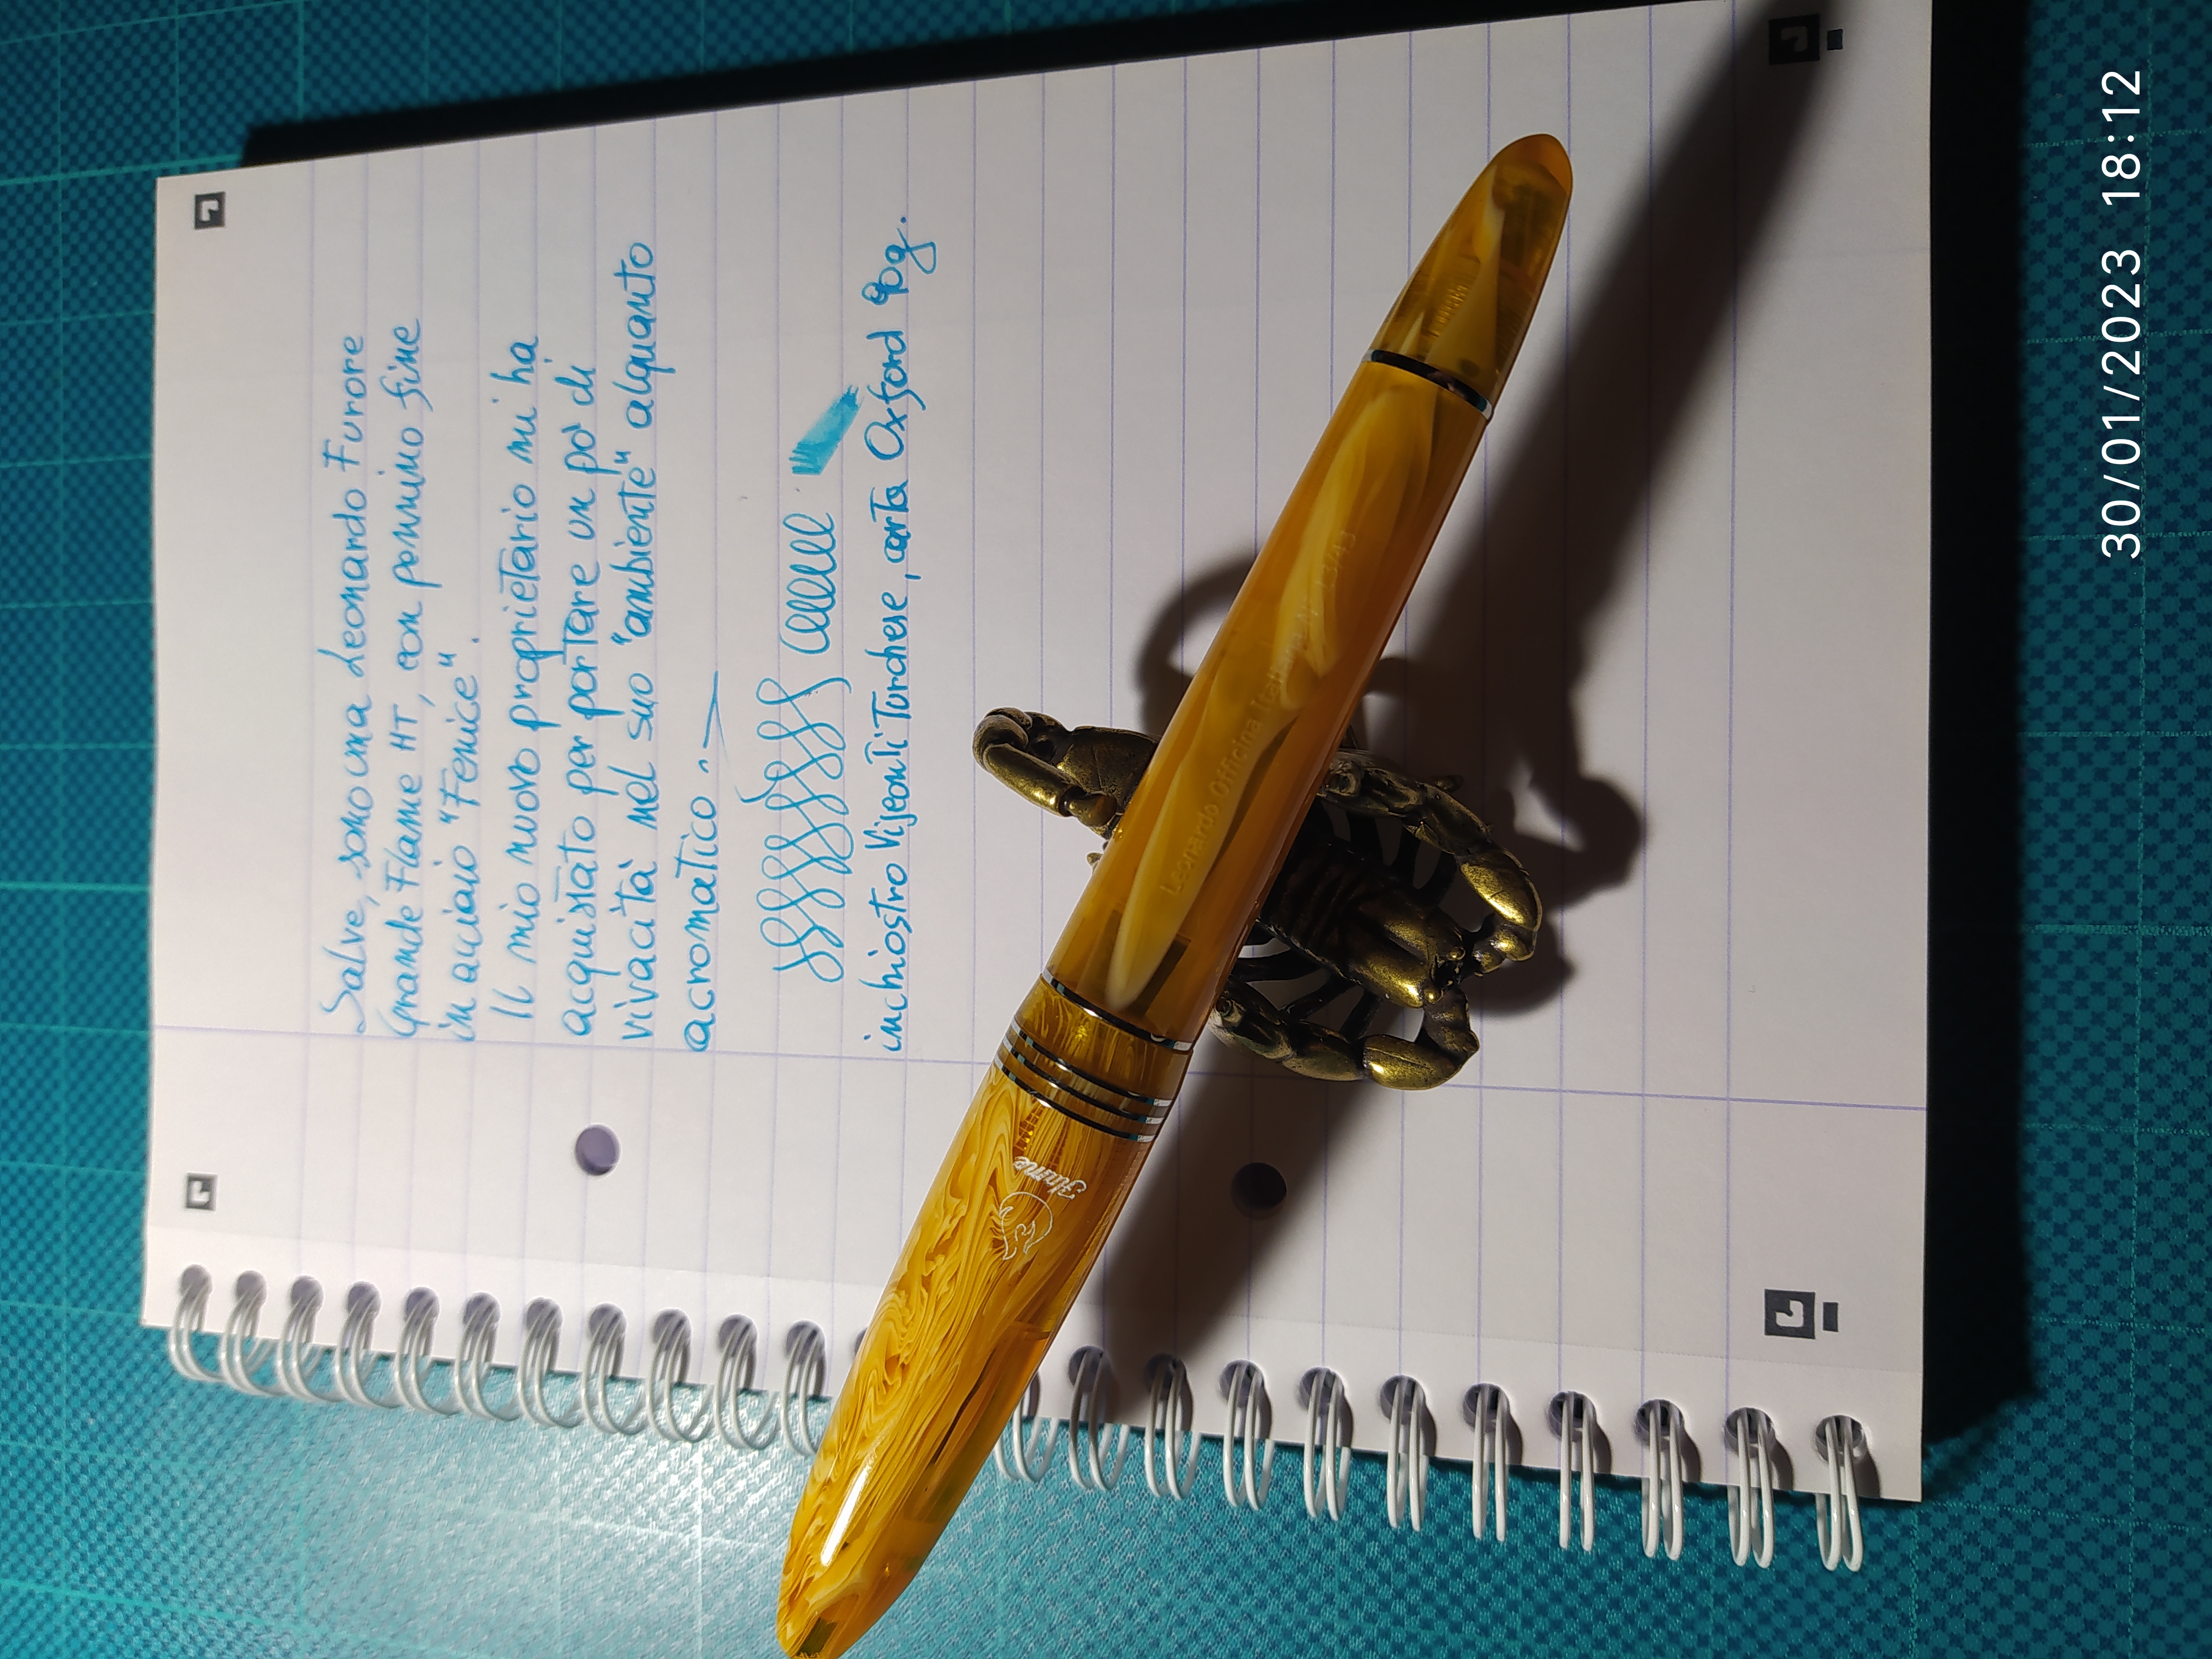 Salve, sono una Leonardo Furore
Grande Flame HT, con pennino fine
in acciaio "Fenice".
Il mio nuovo proprietario mi ha
acquistato per portare un po' di
vivacità nel suo "ambiente" alquanto
acromatico.
inchiostro Visconti Turchese, carta Oxford 90g.
Leonardo Officina Italiana N° 13/43
Flame
30/01/2023 18:12